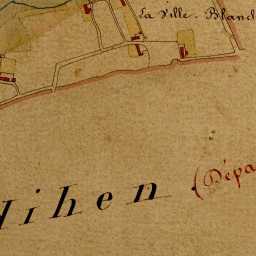 La Ville Blanc
dihen (Dépa